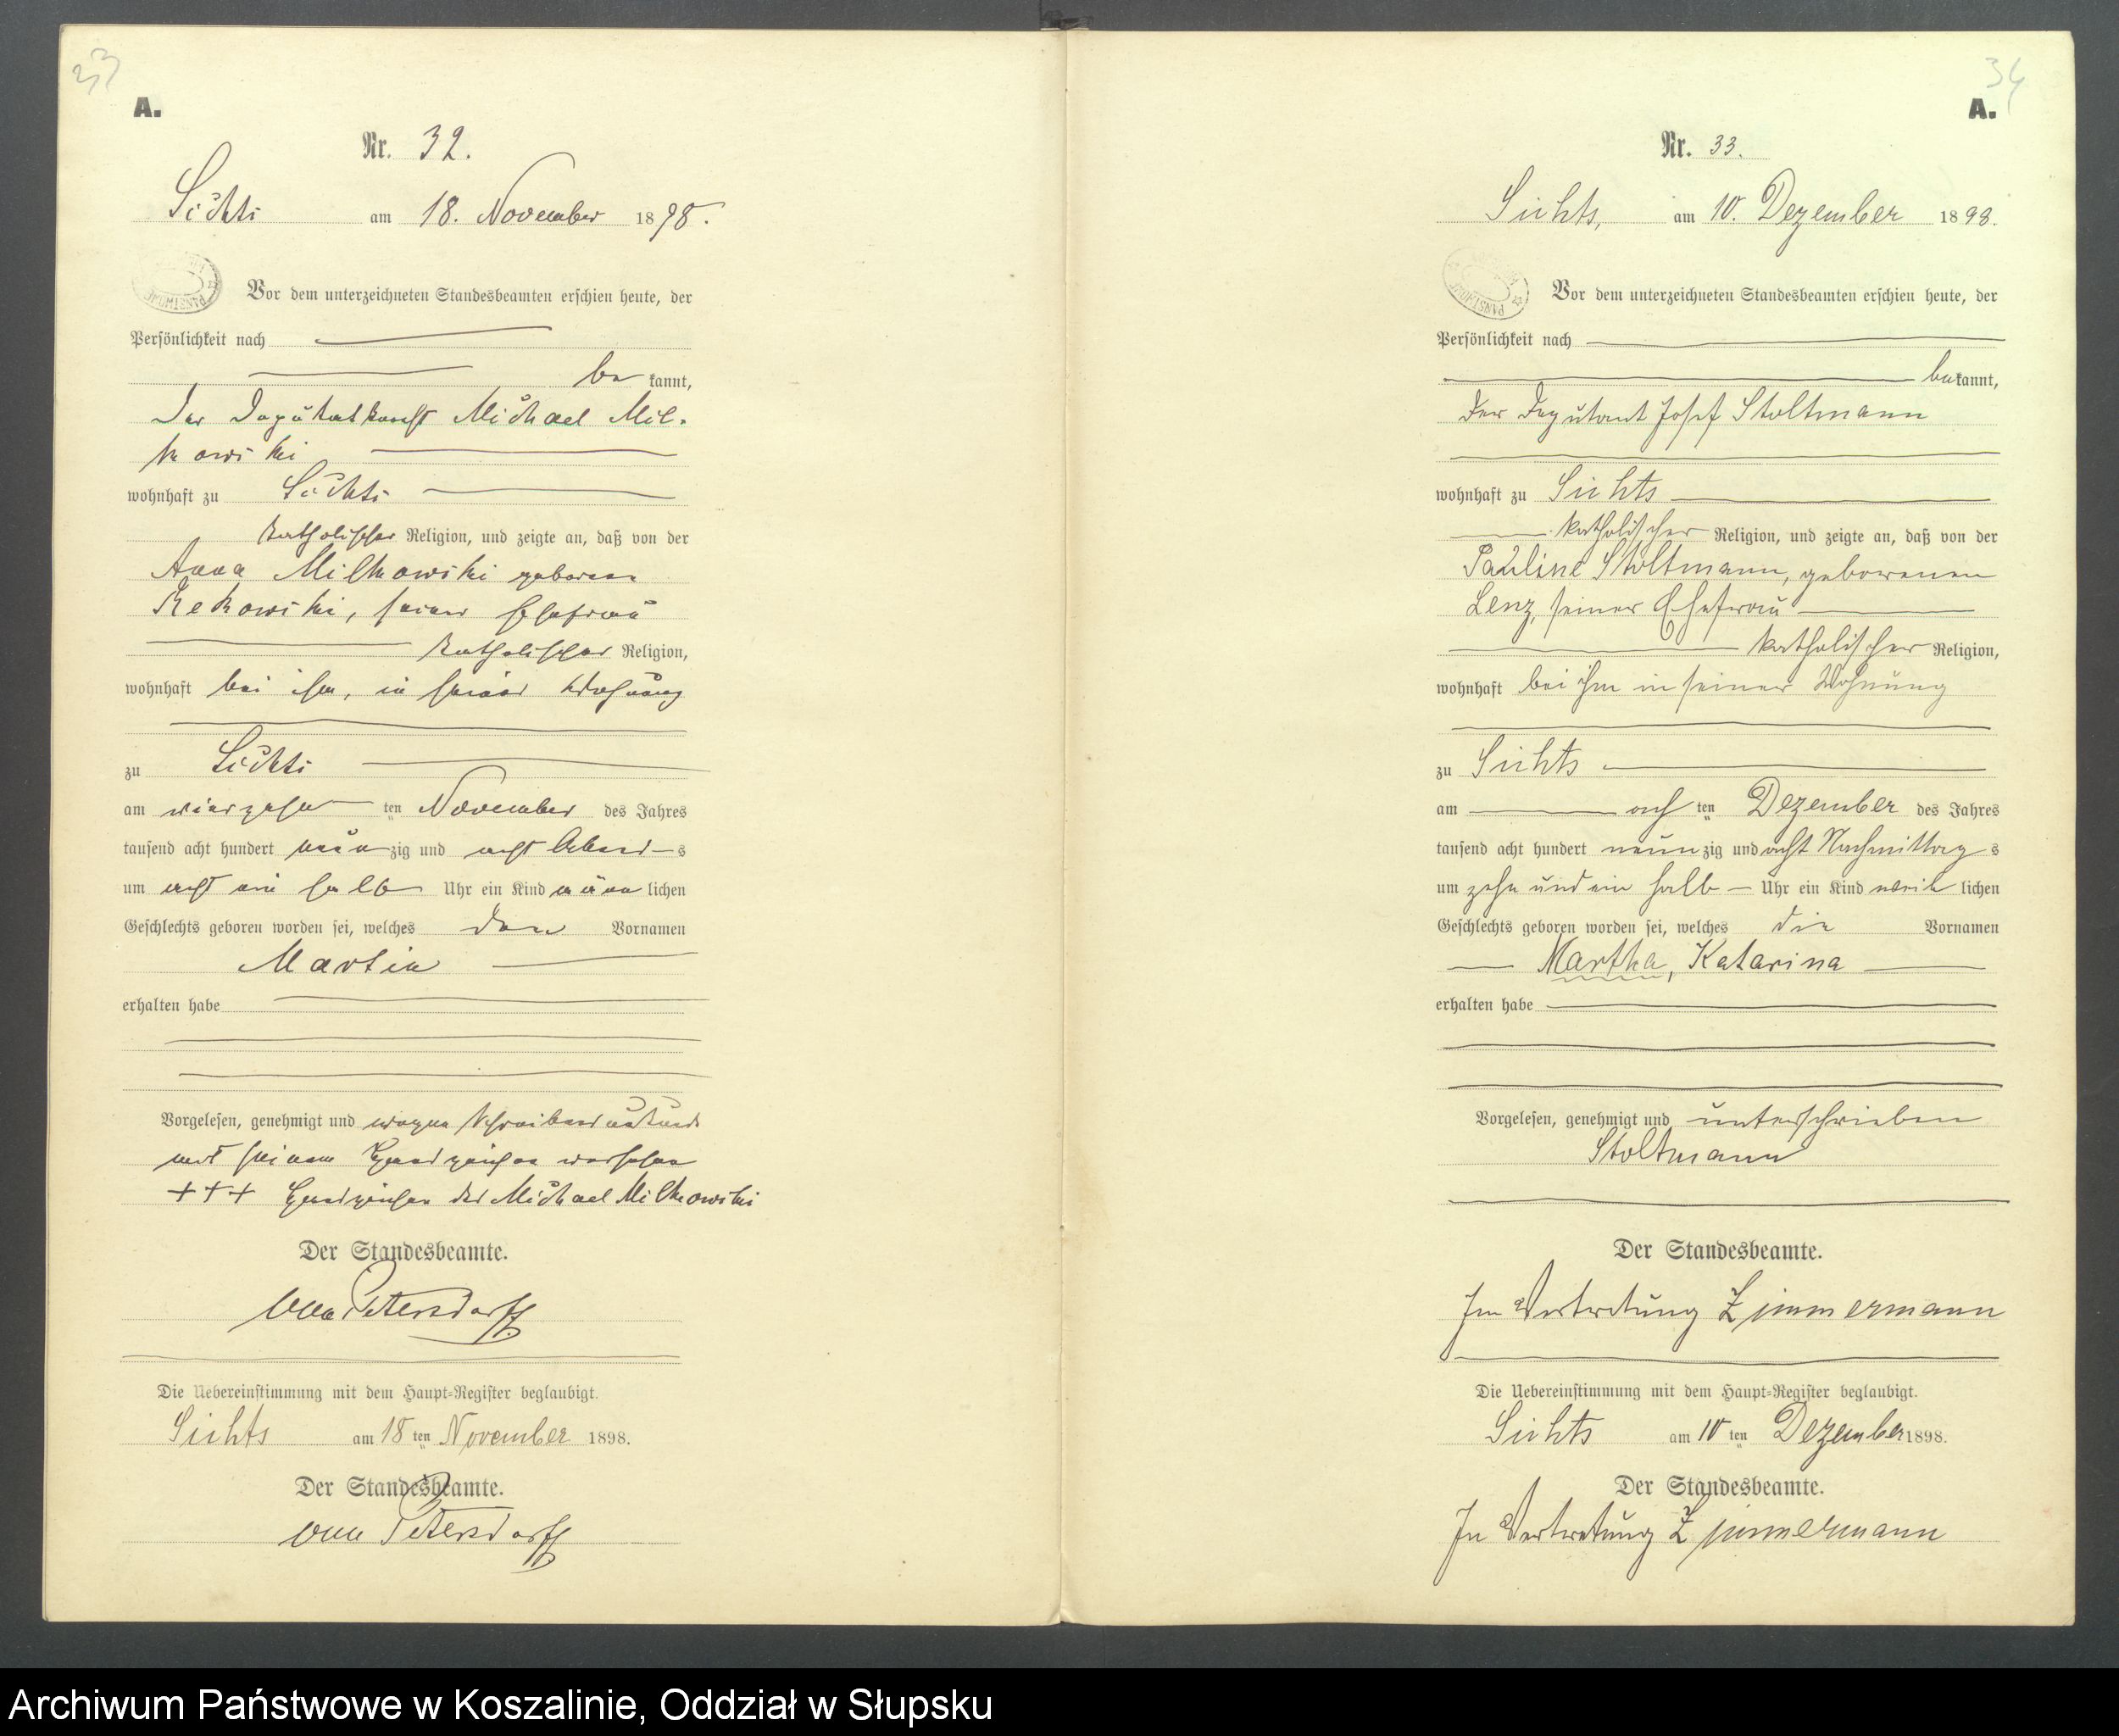 33
A.
Nr. 32.
Sichts am 18. November 1898.
Vor dem unterzeichneten Standesbeamten erschien heute, der
Persönlichkeit nach
bekannt,
Der Deputatknecht Michael Mil-
kowski
wohnhaft zu Sichts
katholischer Religion, und zeigte an, daß von der
Anna Milkowski geborene
Kekowski, seiner Ehefrau
katholischer Religion,
wohnhaft bei ihm, in seiner Wohnung
zu Sichts
am vierzehn ten November des Jahres
tausend acht hundert neunzig und acht Abends
um acht ein halb Uhr ein Kind männlichen
Geschlechts geboren worden sei, welches den Vornamen
Martin
erhalten habe
Vorgelesen, genehmigt und wegen Schreibensunkunde
mit seinem Handzeichen versehen
+++ Handzeichen des Michael Milkowski
Der Standesbeamte.
von Petersdorff
Die Uebereinstimmung mit dem Haupt-Register beglaubigt.
Sichts am 18ten November 1898.
Der Standesbeamte.
von Petersdorff
34
A.
Nr. 33.
Sichts, am 10. Dezember 1898.
Vor dem unterzeichneten Standesbeamten erschien heute, der
Persönlichkeit nach
bekannt,
der Deputant Josef Stoltmann
wohnhaft zu Sichts
katholischer Religion, und zeigte an, daß von der
Pauline Stoltmann, geborenen
Lenz, seiner Ehefrau
katholischer Religion,
wohnhaft bei ihm in seiner Wohnung
zu Sichts
am achten Dezember des Jahres
tausend acht hundert neunzig und acht Nachmittags
um zehn und ein halb Uhr ein Kind weiblichen
Geschlechts geboren worden sei, welches die Vornamen
Martha, Katarina
erhalten habe
Vorgelesen, genehmigt und unterschrieben
Stoltmann
Der Standesbeamte.
In Vertretung Zimmermann
Die Uebereinstimmung mit dem Haupt-Register beglaubigt.
Sichts am 10ten Dezember 1898.
Der Standesbeamte.
In Vertretung Zimmermann
Archiwum Państwowe w Koszalinie, Oddział w Słupsku